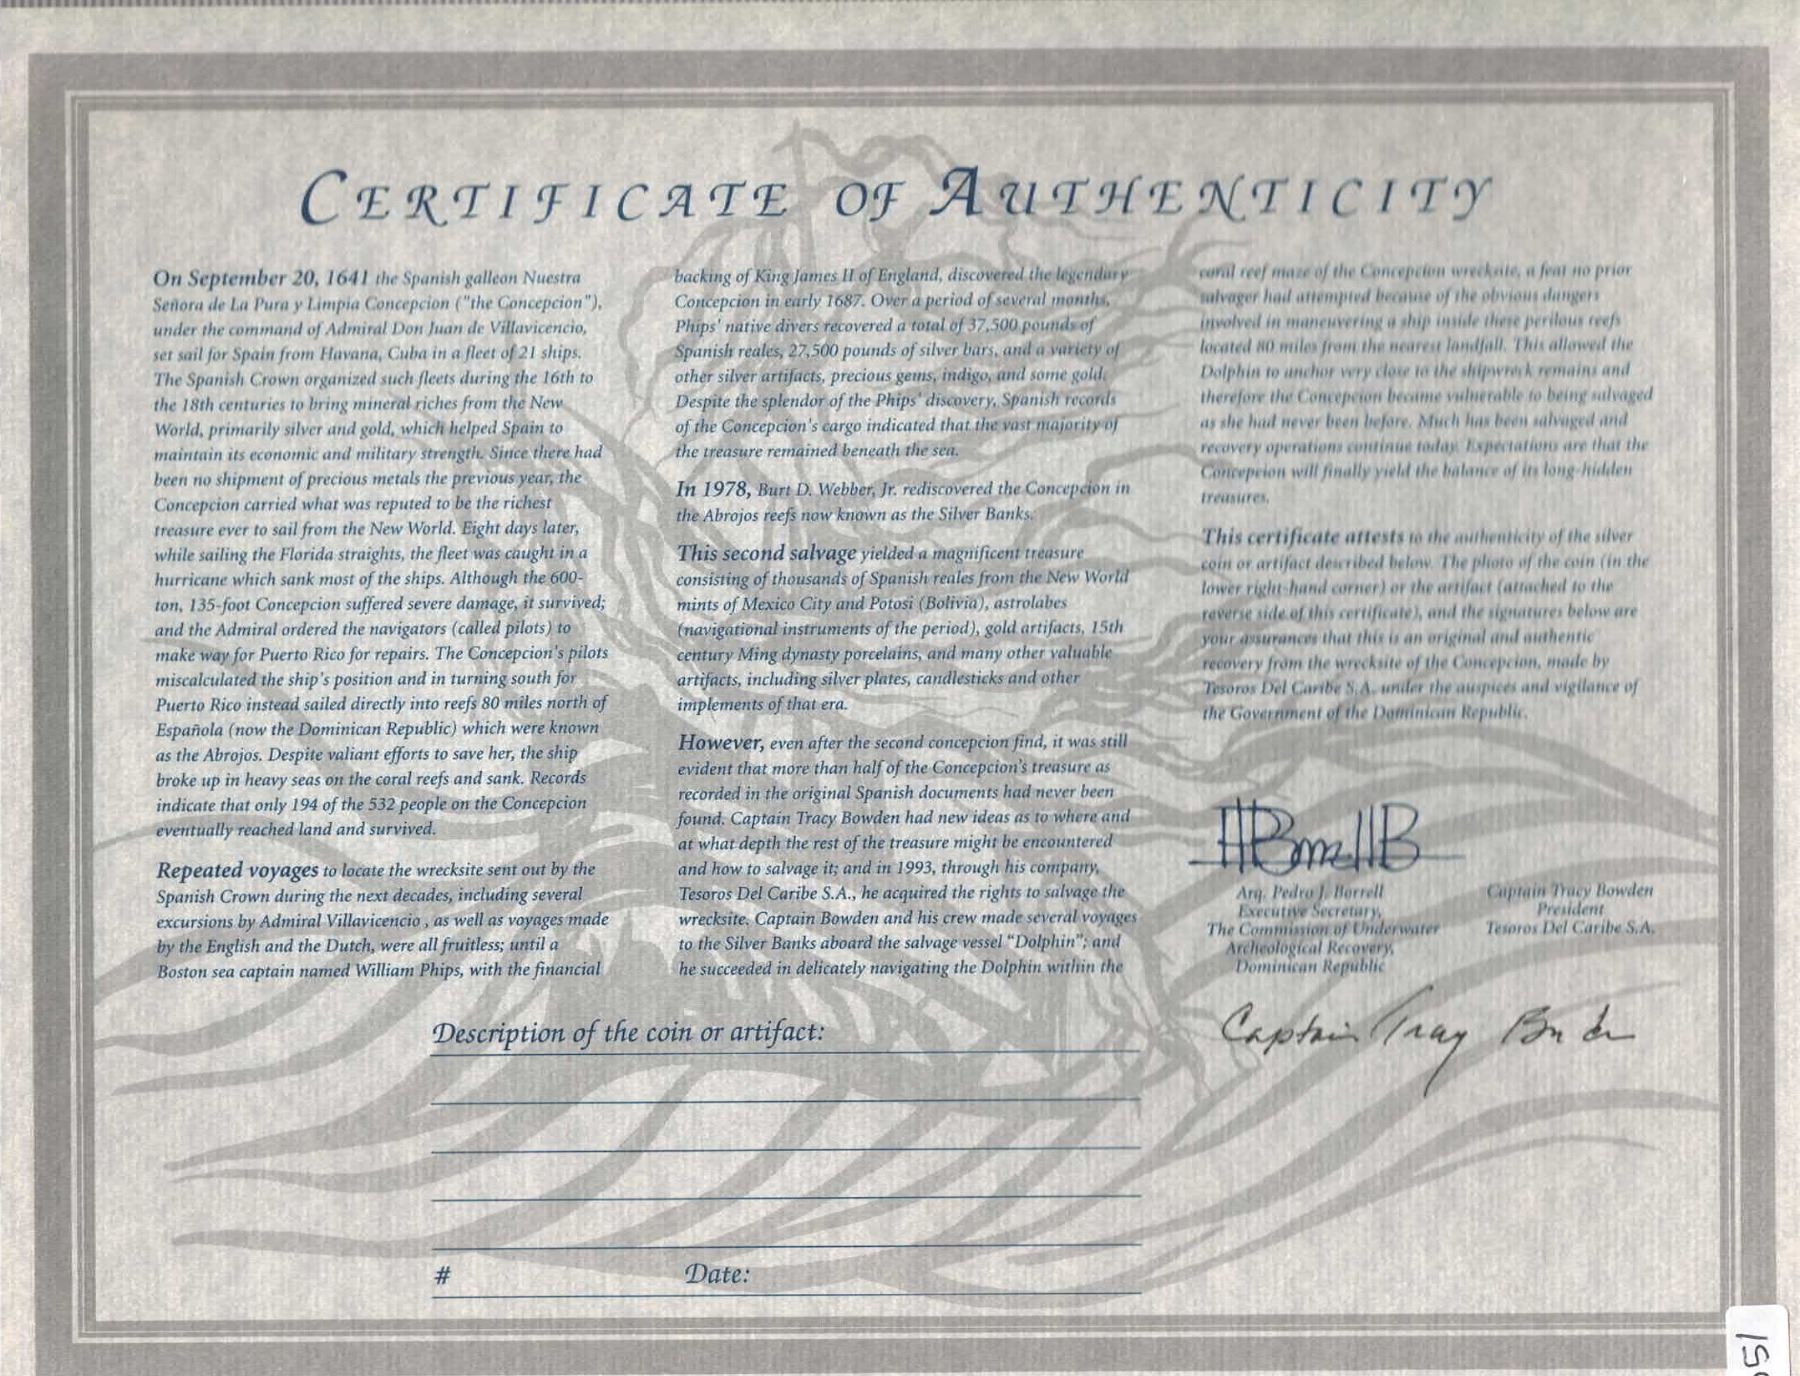 CERTIFICATE OF AUTHENTICITY
On September 20, 1641 the Spanish galleon Nuestra
Señora de La Pura y Limpia Concepcion ("the Concepcion"),
under the command of Admiral Don Juan de Villavicencio,
set sail for Spain from Havana, Cuba in a fleet of 21 ships.
The Spanish Crown organized such fleets during the 16th to
the 18th centuries to bring mineral riches from the New
World, primarily silver and gold, which helped Spain to
maintain its economic and military strength. Since there had
been no shipment of precious metals the previous year, the
Concepcion carried what was reputed to be the richest
treasure ever to sail from the New World. Eight days later,
while sailing the Florida straights, the fleet was caught in a
hurricane which sank most of the ships. Although the 600-
ton, 135-foot Concepcion suffered severe damage, it survived;
and the Admiral ordered the navigators (called pilots) to
make way for Puerto Rico for repairs. The Concepcion's pilots
miscalculated the ship's position and in turning south for
Puerto Rico instead sailed directly into reefs 80 miles north of
Española (now the Dominican Republic) which were known
as the Abrojos. Despite valiant efforts to save her, the ship
broke up in heavy seas on the coral reefs and sank. Records
indicate that only 194 of the 532 people on the Concepcion
eventually reached land and survived.
Repeated voyages to locate the wrecksite sent out by the
Spanish Crown during the next decades, including several
excursions by Admiral Villavicencio , as well as voyages made
by the English and the Dutch, were all fruitless; until a
Boston sea captain named William Phips, with the financial
backing of King James II of England, discovered the legendary
Concepcion in early 1687. Over a period of several months,
Phips' native divers recovered a total of 37,500 pounds of
Spanish reales, 27,500 pounds of silver bars, and a variety of
other silver artifacts, precious gems, indigo, and some gold.
Despite the splendor of the Phips' discovery, Spanish records
of the Concepcion's cargo indicated that the vast majority of
the treasure remained beneath the sea.
In 1978, Burt D. Webber, Jr. rediscovered the Concepcion in
the Abrojos reefs now known as the Silver Banks.
This second salvage yielded a magnificent treasure
consisting of thousands of Spanish reales from the New World
mints of Mexico City and Potosi (Bolivia), astrolabes
(navigational instruments of the period), gold artifacts, 15th
century Ming dynasty porcelains, and many other valuable
artifacts, including silver plates, candlesticks and other
implements of that era.
However, even after the second concepcion find, it was still
evident that more than half of the Concepcion's treasure as
recorded in the original Spanish documents had never been
found. Captain Tracy Bowden had new ideas as to where and
at what depth the rest of the treasure might be encountered
and how to salvage it; and in 1993, through his company,
Tesoros Del Caribe S.A., he acquired the rights to salvage the
wrecksite. Captain Bowden and his crew made several voyages
to the Silver Banks aboard the salvage vessel "Dolphin"; and
he succeeded in delicately navigating the Dolphin within the
coral reef maze of the Concepcion wrecksite, a feat no prior
salvager had attempted because of the obvious dangers
involved in maneuvering a ship inside these perilous reefs
located 80 miles from the nearest landfall. This allowed the
Dolphin to anchor very close to the shipwreck remains and
therefore the Concepcion became vulnerable to being salvaged
as she had never been before. Much has been salvaged and
recovery operations continue today. Expectations are that the
Concepcion will finally yield the balance of its long-hidden
treasures.
This certificate attests to the authenticity of the silver
coin or artifact described below. The photo of the coin (in the
lower right-hand corner) or the artifact (attached to the
reverse side of this certificate), and the signatures below are
your assurances that this is an original and authentic
recovery from the wrecksite of the Concepcion, made by
Tesoros Del Caribe S.A. under the auspices and vigilance of
the Government of the Dominican Republic.
Arq. Pedro J. Borrell
Executive Secretary,
The Commission of Underwater
Archeological Recovery,
Dominican Republic
Captain Tracy Bowden
President
Tesoros Del Caribe S.A.
Captain Tracy Bowden
Description of the coin or artifact:
# Date: